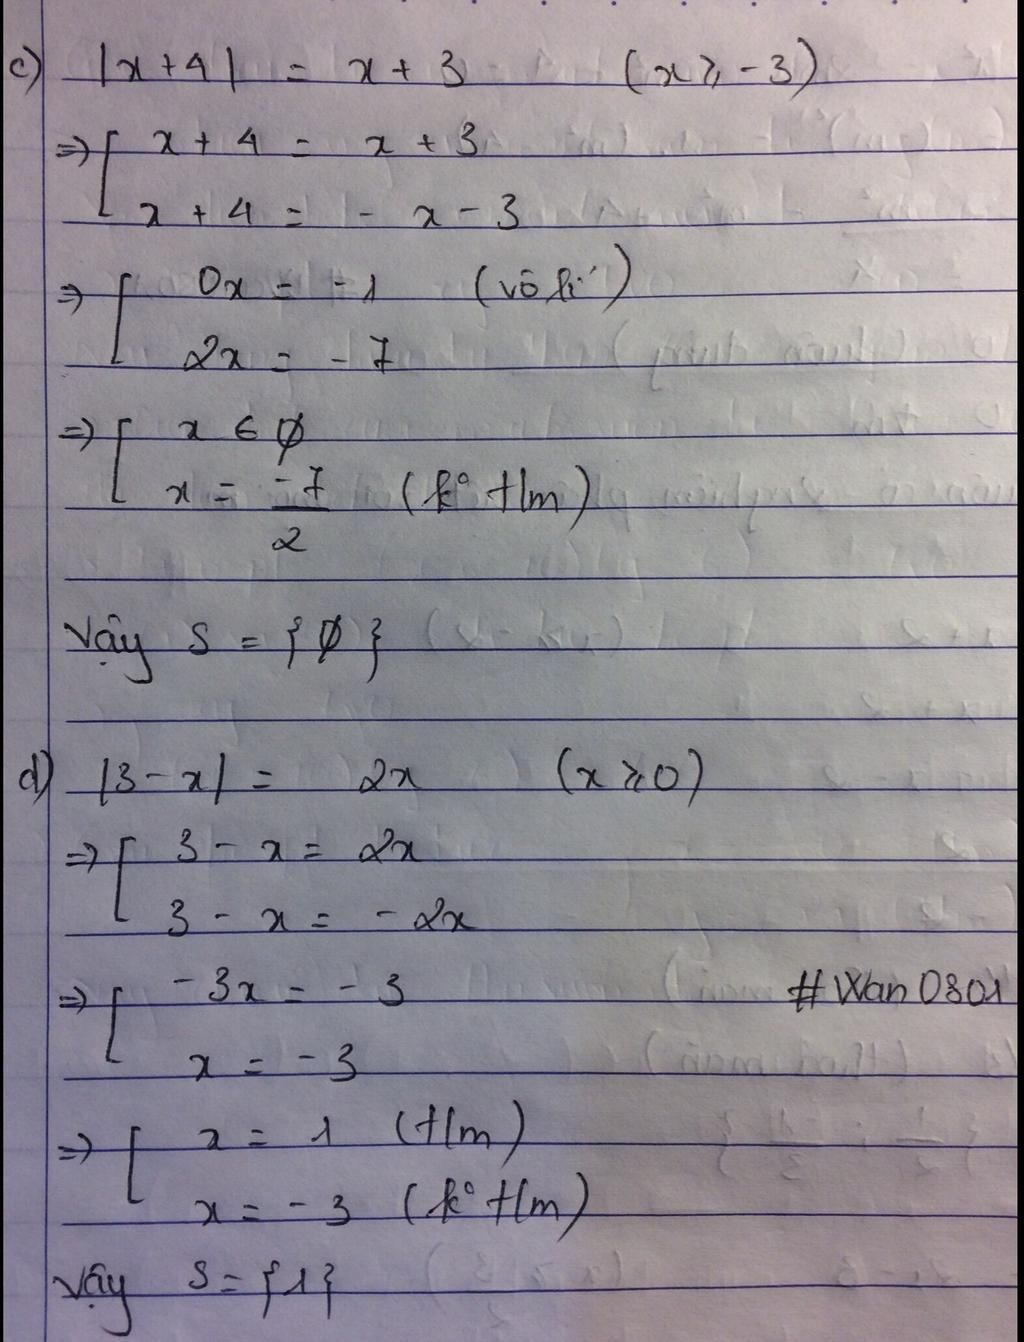 c) |x+4| = x+3 (x ≥ -3)
=> [ x + 4 = x + 3
x + 4 = - x - 3
=> [ 0x = -1 (vô lí)
2x = -7
=> [ x ∈ ∅
x = -7/2 (k° t/m)
Vậy S = {∅}
d) |3-x| = 2x (x ≥ 0)
=> [ 3 - x = 2x
3 - x = - 2x
=> [ -3x = -3 #Wan0301
x = -3
=> [ x = 1 (t/m)
x = -3 (k° t/m)
Vậy S = {1}